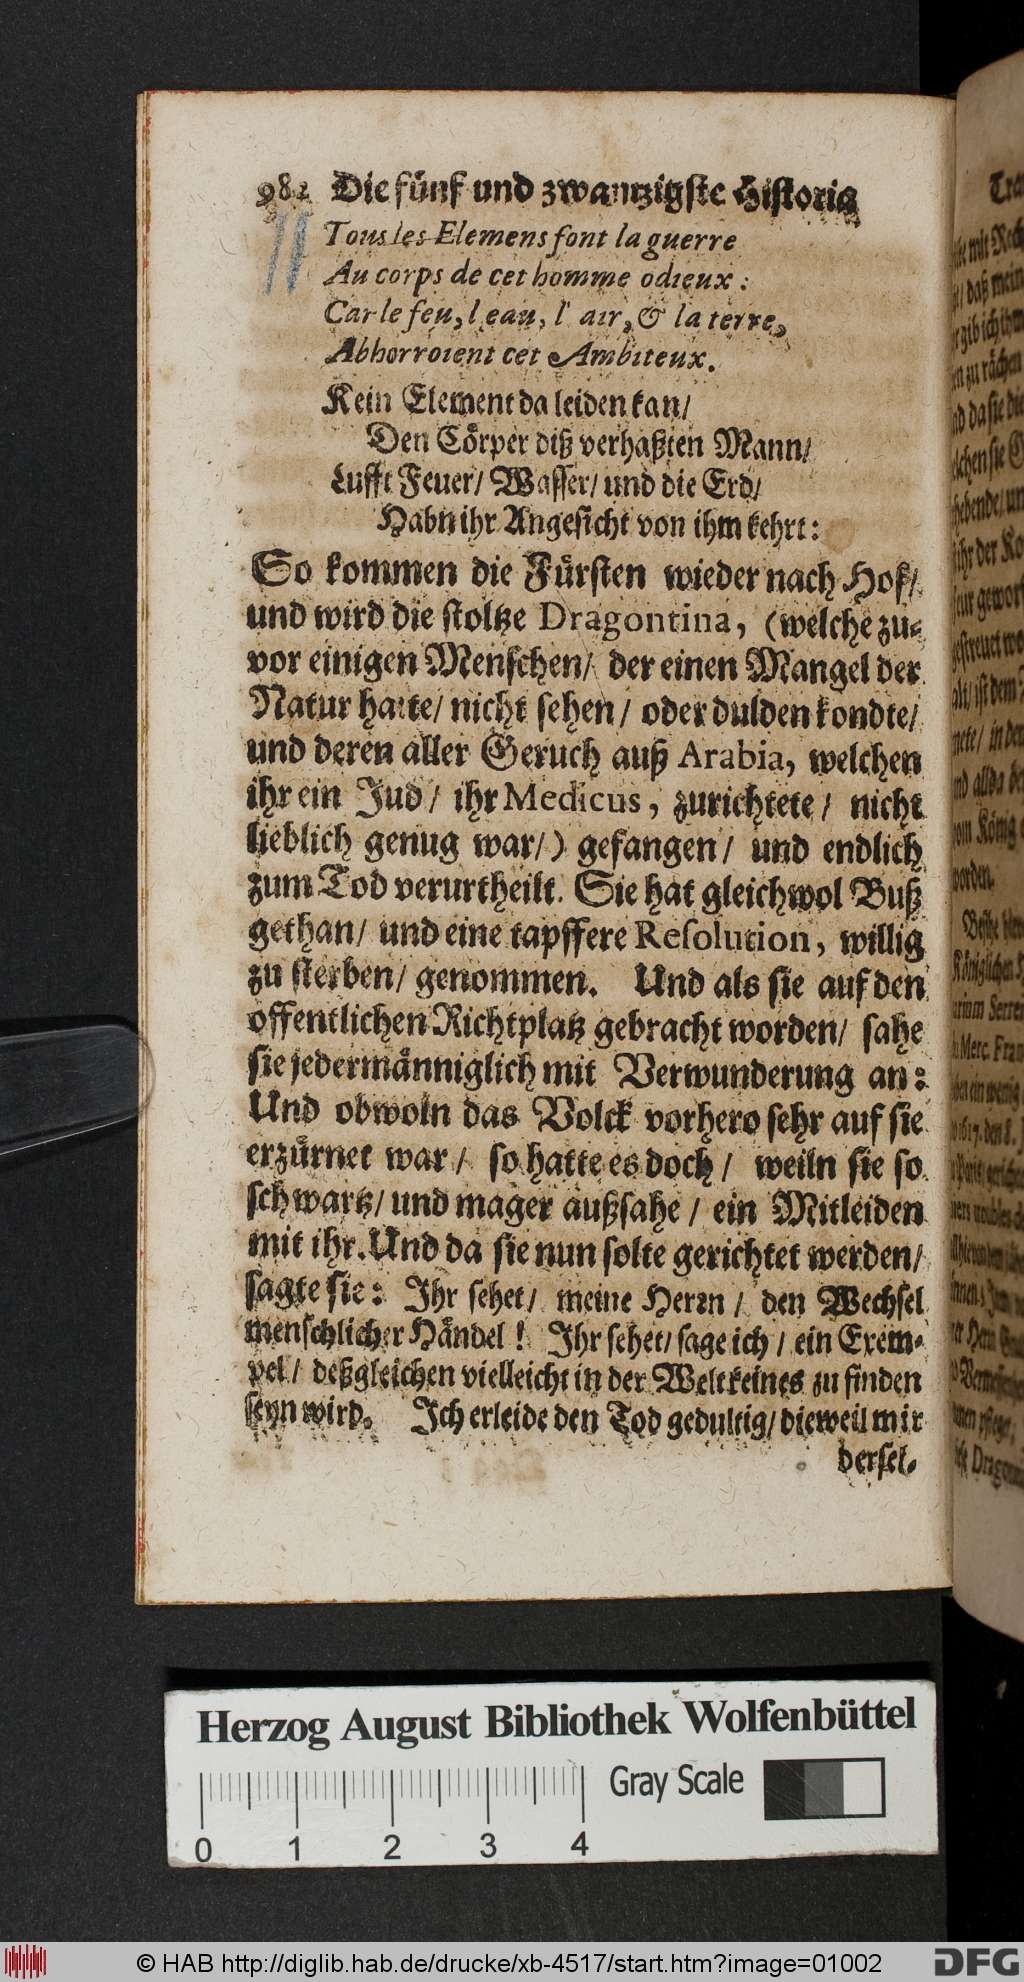 982 Die fünf und zwantzigste Historia
Tous les Elemens font la guerre
Au corps de cet homme odieux:
Car le feu, l'eau, l'air, & la terre,
Abhorroient cet Ambiteux.
Kein Element da leiden kan/
Den Cörper diß verhaßten Mann/
Lufft Feuer/ Wasser/ und die Erd/
Habn ihr Angesicht von ihm kehrt:
So kommen die Fürsten wieder nach Hof/
und wird die stoltze Dragontina, (welche zu-
vor einigen Menschen/ der einen Mangel der
Natur hatte/ nicht sehen/ oder dulden kondte/
und deren aller Geruch auß Arabia, welchen
ihr ein Jud/ ihr Medicus, zurichtete/ nicht
lieblich genug war/) gefangen/ und endlich
zum Tod verurtheilt. Sie hat gleichwol Buß
gethan/ und eine tapffere Resolution, willig
zu sterben/ genommen. Und als sie auf den
offentlichen Richtplatz gebracht worden/ sahe
sie jedermänniglich mit Verwunderung an:
Und obwoln das Volck vorhero sehr auf sie
erzürnet war/ so hatte es doch/ weiln sie so
schwartz/ und mager außsahe/ ein Mitleiden
mit ihr. Und da sie nun solte gerichtet werden/
sagte sie: Ihr sehet/ meine Herrn/ den Wechsel
menschlicher Händel! Ihr sehet/ sage ich/ ein Exem-
pel/ deßgleichen vielleicht in der Welt keines zu finden
seyn wird. Ich erleide den Tod gedultig/ dieweil mir
dersel-
Herzog August Bibliothek Wolfenbüttel
Gray Scale
0 1 2 3 4
© HAB http://diglib.hab.de/drucke/xb-4517/start.htm?image=01002
DFG